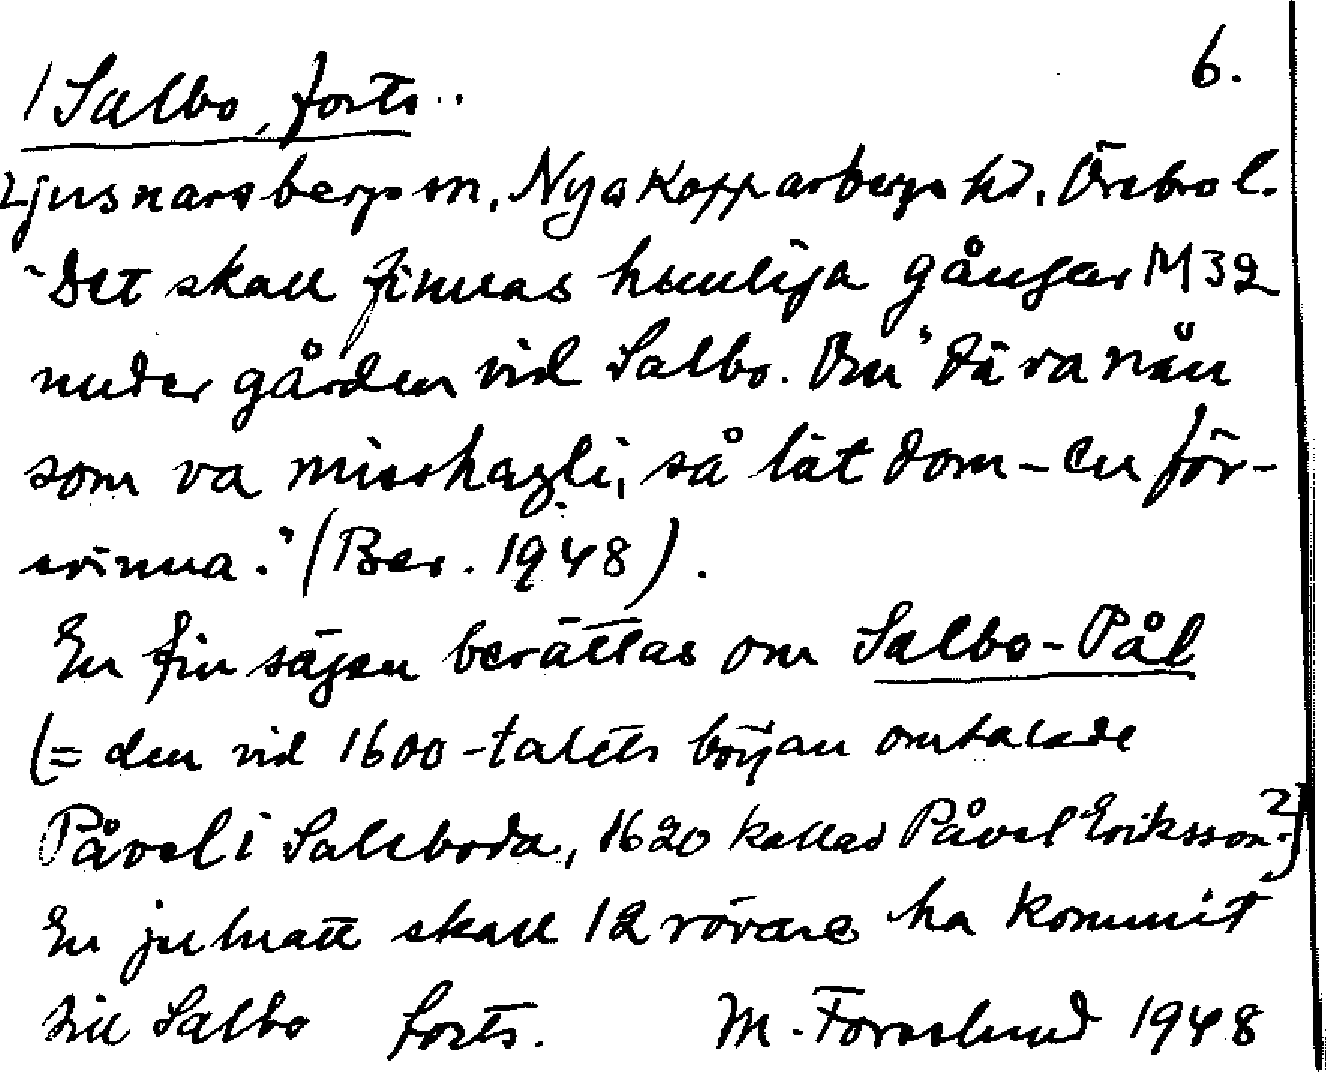 6.
/Salbo, forts..
Ljusnarsbergs sn, Nya Kopparbergs hd. Örebro l.
"Det skall finnas hemliga gångar M32
under gården vid Salbo. Om dä va nån
som va misshagli, så lät dom-en för-
svinna." (Ber. 1948).
En fin sägen berättas om Salbo-Pål
(= den vid 1600-talets början omtalade
Påvel i Saleboda, 1620 kallad Påvel Eriksson?)
En julnatt skall 12 rövare ha kommit
till Salbo forts. M. Forsslund 1948